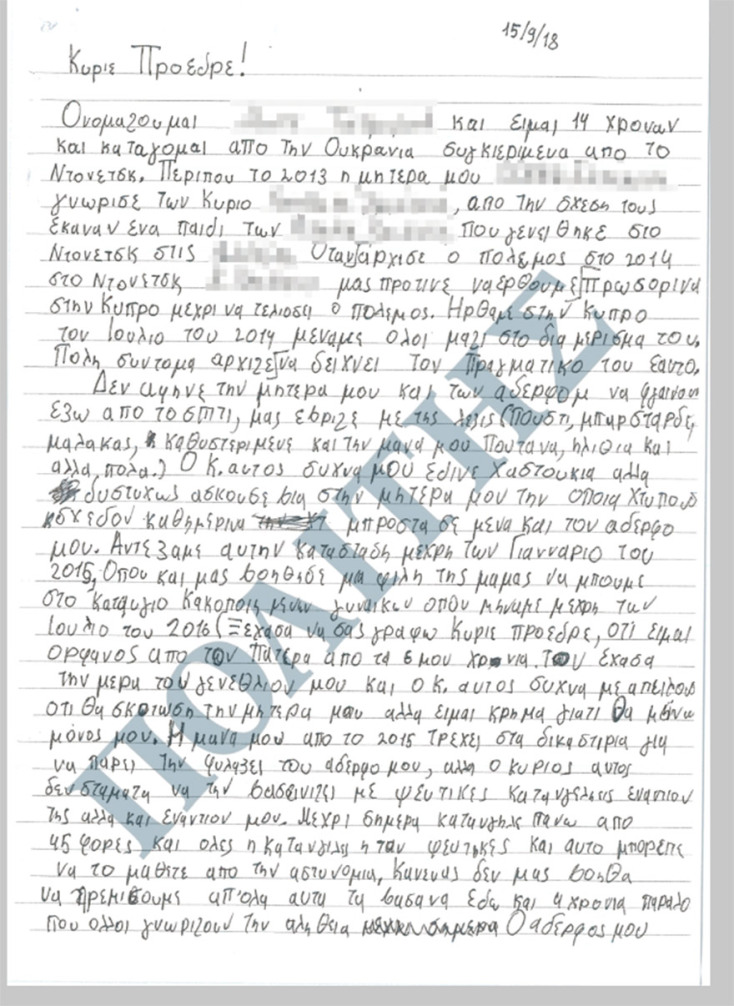 15/9/18
Κυριε Προεδρε!
Ονομαζουμαι και ειμαι 14 χρονων
και καταγομαι απο την Ουκρανια συγκιεριμενα απο το
Ντονετσκ. Περιπου το 2013 η μητερα μου
γνωρισε των Κυριο , απο την σχεση τους
εκαναν ενα παιδι των που γενειθηκε στο
Ντονετσκ στις Οταν αρχισε ο πολεμος στο 2014
στο Ντονετσκ μας προτινε να ερθουμε πρωσορινα
στην Κυπρο μεχρι να τελιοσει ο πολεμος. Ηρθαμε στην Κυπρο
τον Ιουλιο του 2014 μεναμε ολοι μαζι στο διαμερισμα του.
Πολη συντομα αρχιζε να δειχνει τον πραγματικο του εαυτο.
Δεν αφηνε την μητερα μου και των αδερφομ να φγαινουν
εξω απο το σπιτι, μας εβριζε με της λεξις (Πουστι, μπαρσταρδε,
μαλακας, καθυστεριμενε και την μανα μου Πουτανα, ηλιθια και
αλλα, πολα.) Ο κ. αυτος συχνα μου εδινε χαστουκια αλλα
δυστυχως ασκουσε βια στην μητερα μου την οποια χτυπουσ
σχεδον καθημερινα μπροστα σε μενα και τον αδερφο
μου. Αντεξαμε αυτην κατασταση μεχρη των Γιανναριο του
2015, Οπου και μας βοηθησε μια φιλη της μαμας να μπουμε
στο καταφυγιο κακοποιημενων γυναικων οπου μηναμε μεχρη των
Ιουλιο του 2016 (Ξεχασα να σας γραφω Κυριε προεδρε, οτι ειμαι
ορφανος απο τον πατερα απο τα 6 μου χρονια. Τον εχασα
την μερα του γενεθλιου μου και ο κ. αυτος συχνα με απειλουσ
οτι θα σκοτωση την μητερα μου αλλα ειμαι κρημα γιατι θα μεινω
μονος μου. Η μανα μου απο το 2015 τρεχει στα δικαστιρια για
να παρει την φυλαξει του αδερφο μου, αλλα ο κυριος αυτος
δεν σταματα να την βασανιζει με ψευτικες κατανγελιεις εναντιον
της αλλα και εναντιον μου. Μεχρι σημερα κατανγηλε πανω απο
45 φορες και ολες η κατανγιλιες ηταν ψευτικες και αυτο μπορειτε
να το μαθετε απο την αστυνομια, Κανενας δεν μας βοηθα
να ηρεμισουμε απ'ολα αυτα τα βασανα εδω και 4 χρονια παρολο
που ολλοι γνωριζουν την αληθεια Ο αδερφος μου
ΠΟΛΙΤΗΣ